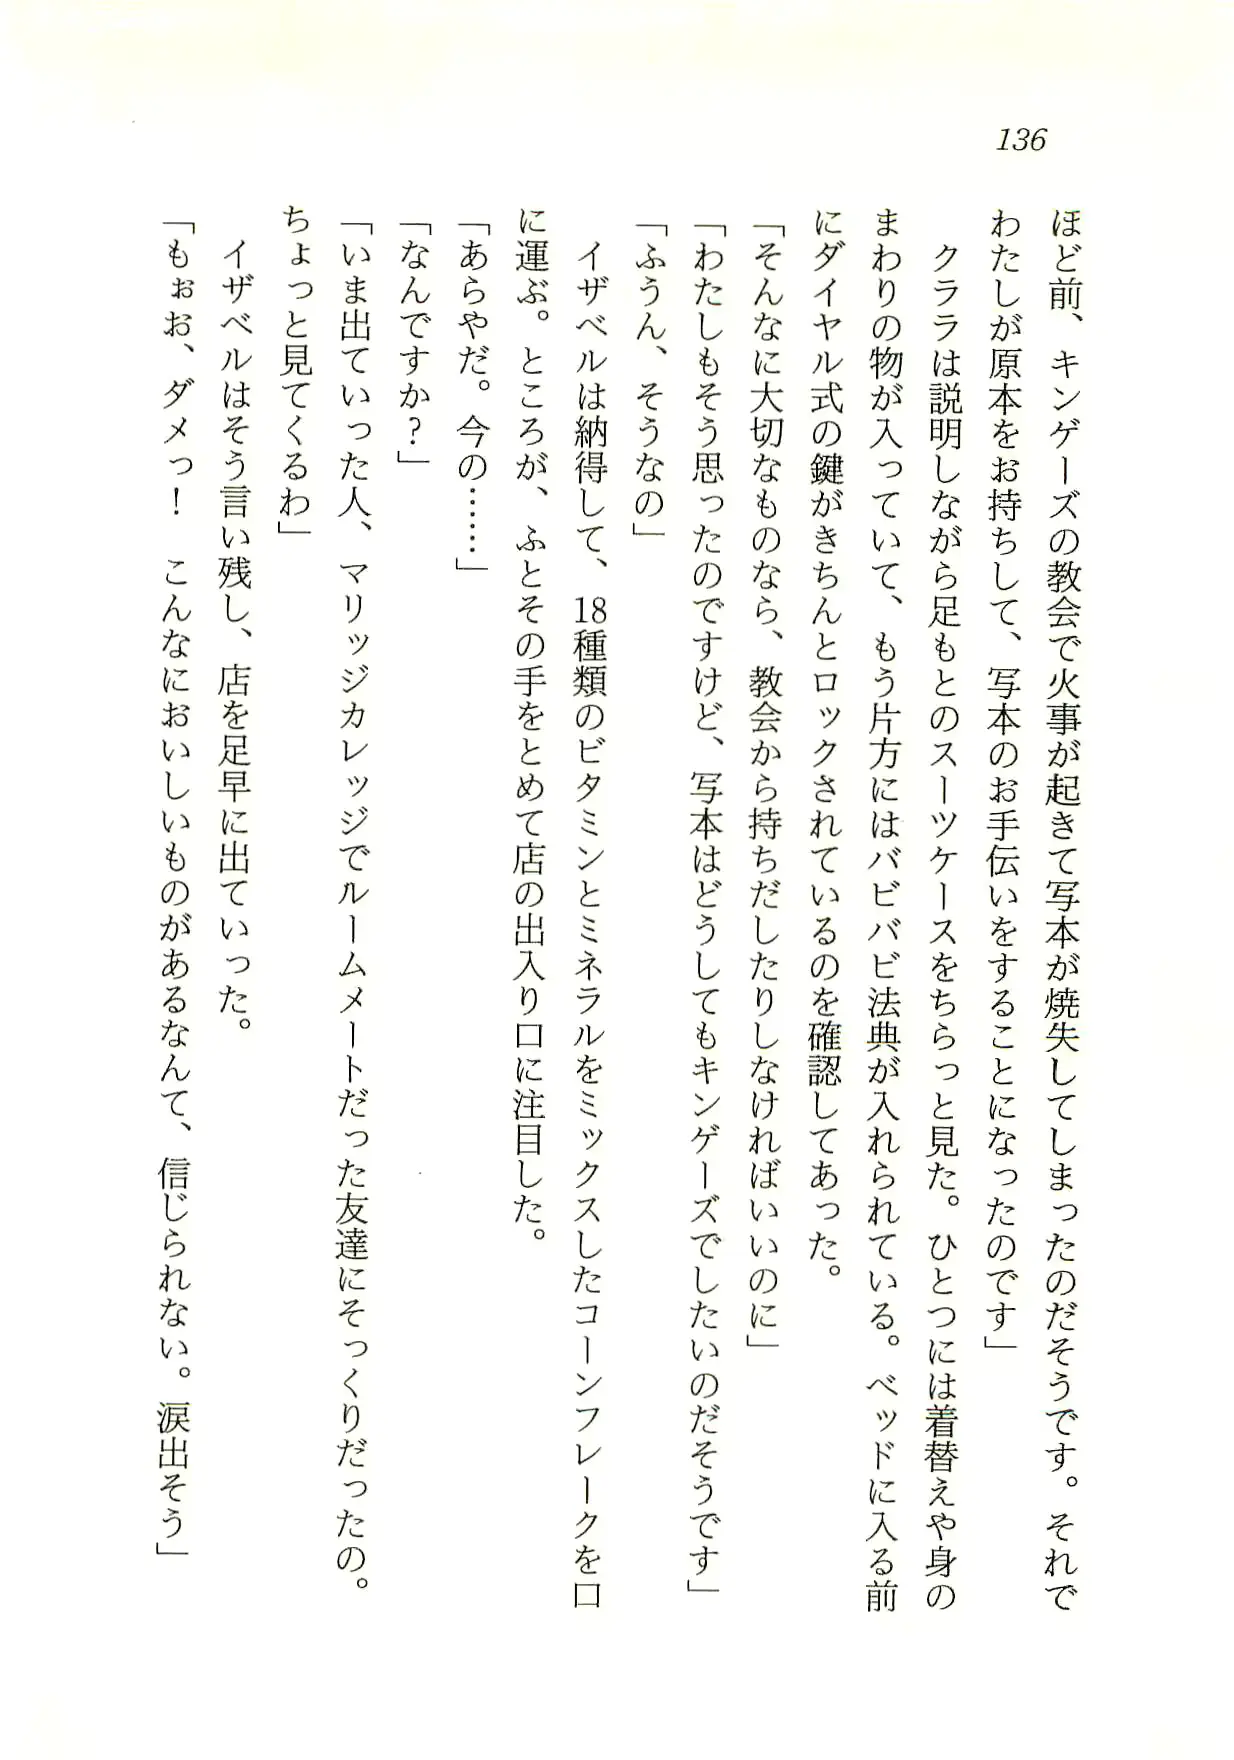 136
ほど前、キンゲーズの教会で火事が起きて写本が焼失してしまったのだそうです。それで
わたしが原本をお持ちして、写本のお手伝いをすることになったのです」
　クララは説明しながら足もとのスーツケースをちらっと見た。ひとつには着替えや身の
まわりの物が入っていて、もう片方にはバビバビ法典が入れられている。ベッドに入る前
にダイヤル式の鍵がきちんとロックされているのを確認してあった。
「そんなに大切なものなら、教会から持ちだしたりしなければいいのに」
「わたしもそう思ったのですけど、写本はどうしてもキンゲーズでしたいのだそうです」
「ふうん、そうなの」
　イザベルは納得して、18種類のビタミンとミネラルをミックスしたコーンフレークを口
に運ぶ。ところが、ふとその手をとめて店の出入り口に注目した。
「あらやだ。今の……」
「なんですか？」
「いま出ていった人、マリッジカレッジでルームメートだった友達にそっくりだったの。
ちょっと見てくるわ」
　イザベルはそう言い残し、店を足早に出ていった。
「もぉお、ダメっ！　こんなにおいしいものがあるなんて、信じられない。涙出そう」